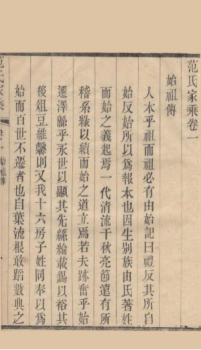 范氏家乘卷一
始祖傳
人本乎祖而祖必有由始記曰禮反其所自
始反始所以爲報本也因生別族由氏著姓
而始之義起焉一代清流千秋亮節遠有所
稽系緜以續而始之道立焉若夫跡奮乎始
遷澤賒乎永世以顯其先緜載爲以裕其
後俎豆維馨則又我十六房子姓同奉以爲
始而百世不遷者也自葉流根敢蹈數典之